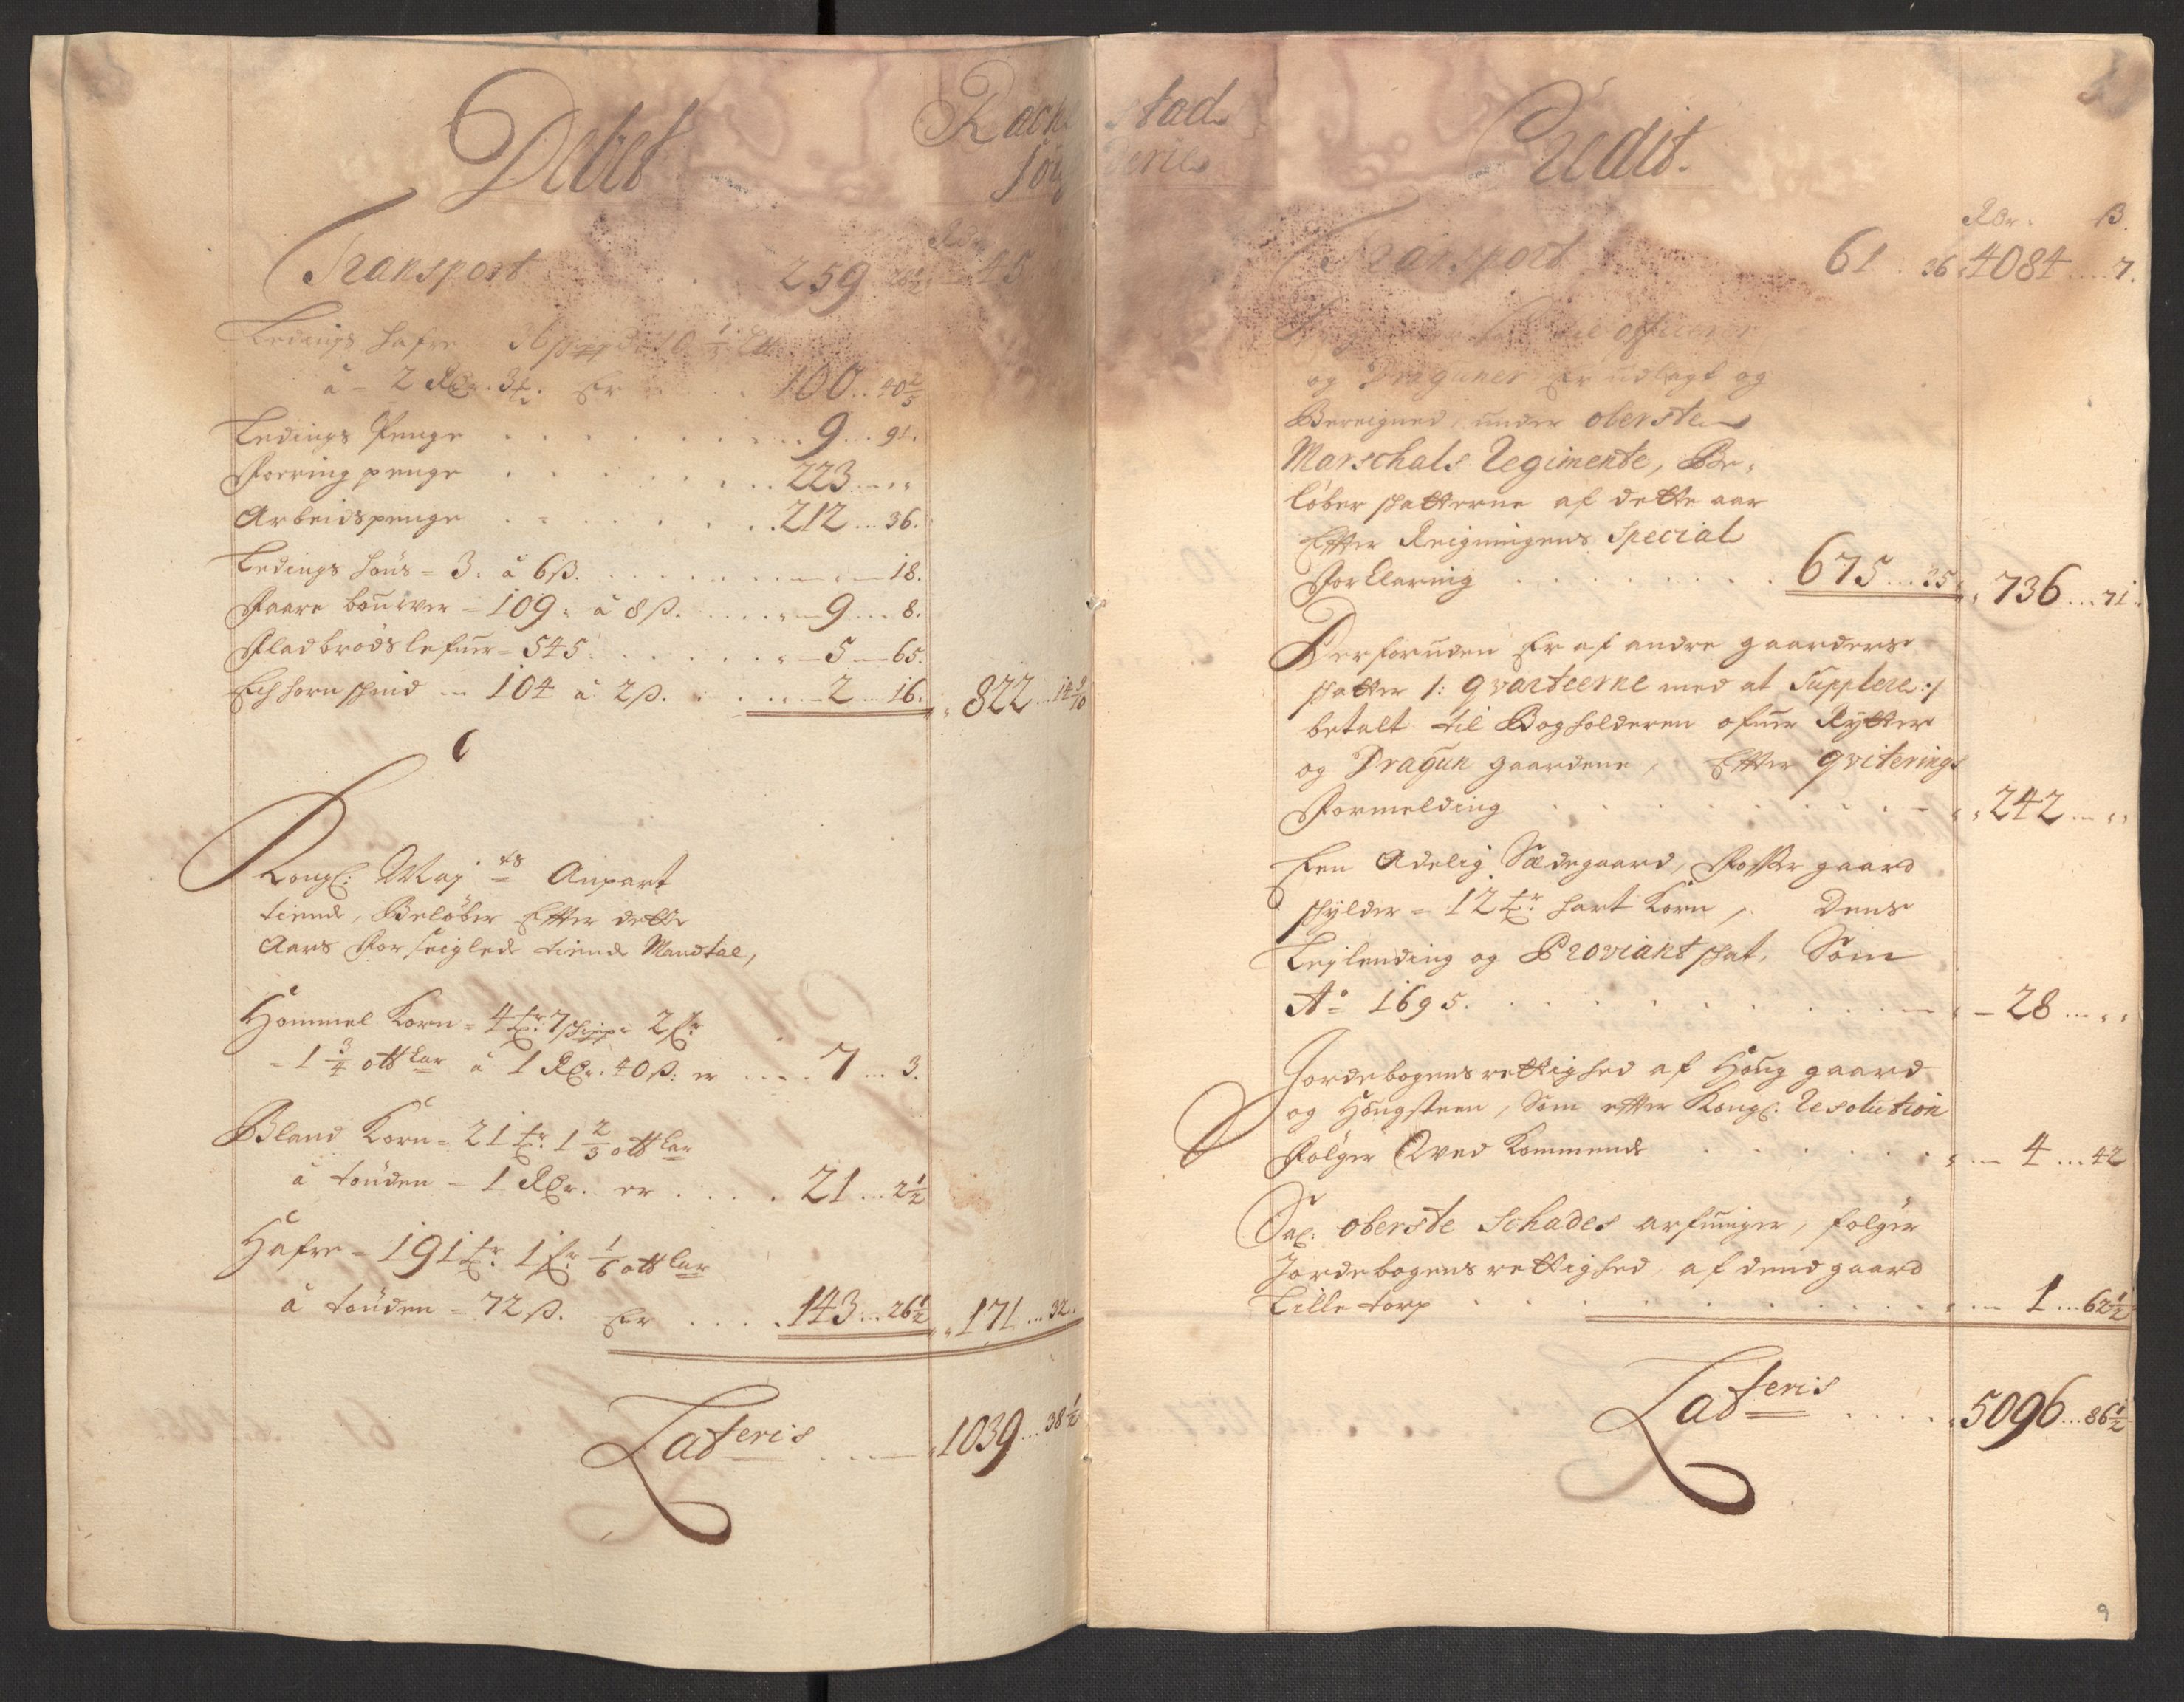 Debet
Rach stad
Foug derie
Transport . 259 .. 20½ 45
Ledings Hafre - 36 schippd: 10 ⅓ L℔
à - 2 Rdr. 3 . Er . . . 100 .. 40⅘
Ledings Penge . . . . . 9 .. 91.
Forring penge . . . . . 223 .. „
Arbeidspenge . . . . . 212 ... 36.
Ledings Høns = 3: à 6 ß. . . . . — 18.
Faare bouwer = 109: à 8 ß. . . . . 9 ... 8.
Fladbrøds lefuer = 545 . . . . . 5 — 65.
Echhorn schind — 104 à 2 ß. . . . . 2 ... 16. 822 ... 14 9/10
Kongl: Maj ts Anpart
tiende, Beløber Efter dette
Aars Forseiglede tiende Mandtal,
Hommel Korn = 4 tr: 7 schipp 2 fr
- 1¾ ottkar à 1 Rdr. 40 ß: er .... 7 ... 3.
Bland Korn = 21 tr. 1⅔ ottkar
à tønden - 1 Rdr. er . . . . 21 ... 2½
Hafre - 191 tr: 1 fr ⅙ ottkar
à tønden = 72 ß. Er . . . . 143 ... 26½ 171 ... 32.
Lateris ... — 1039 ... 38½
Credit.
Rdr. ß.
Transport 61 . 36 4084 .... 7.
officerer
og Draguner er udlagt og
Bereigned, under oberste
Marschals Regimente, Be-
løber skatterne af dette aar
Efter Reigningens Special
Forklaring . . . . . 675 ... 35 736 ... 71.
Derforuden Er af andre gaarders
skatter /: qvarteerne med at Supplere :/
betalt til Bogholderen ofuer Rytter
og Dragun gaardene, Efter qviterings
Formelding . . . . . 242 ... „
Een Adelig Sædegaard, Fosser gaard
schylder = 12 tr: Hart Korn, Dens
Leylending og Proviant skat, Som
Ao 1695. . . . . . — 28 ... „
Jordebogens rettighed af Houg gaard
og Hougsteen, Som efter Kongl: Resolution
Følger Qved Kommende . . . . . — 4 ... 42
Sal: oberste Schades arfuinger, følger
Jordebogens rettighed af dend gaard
Lille torp . . . . . — 1 ... 62½
Lateris . . . . 5096 ... 86½
9